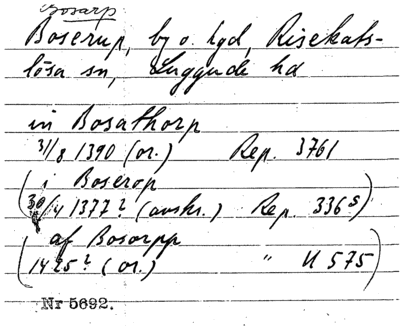 Bosarp
Boserup, by o. hgd, Risekats-
lösa sn, Luggude hd
in Bosathorp
31/8 1390 (or.) Rep. 3761
(i Boserop
30/4 1377? (avskr.) Rep. 336 s)
(af Bosorpp
1425? (or.) " U 575)
Nr 5692.